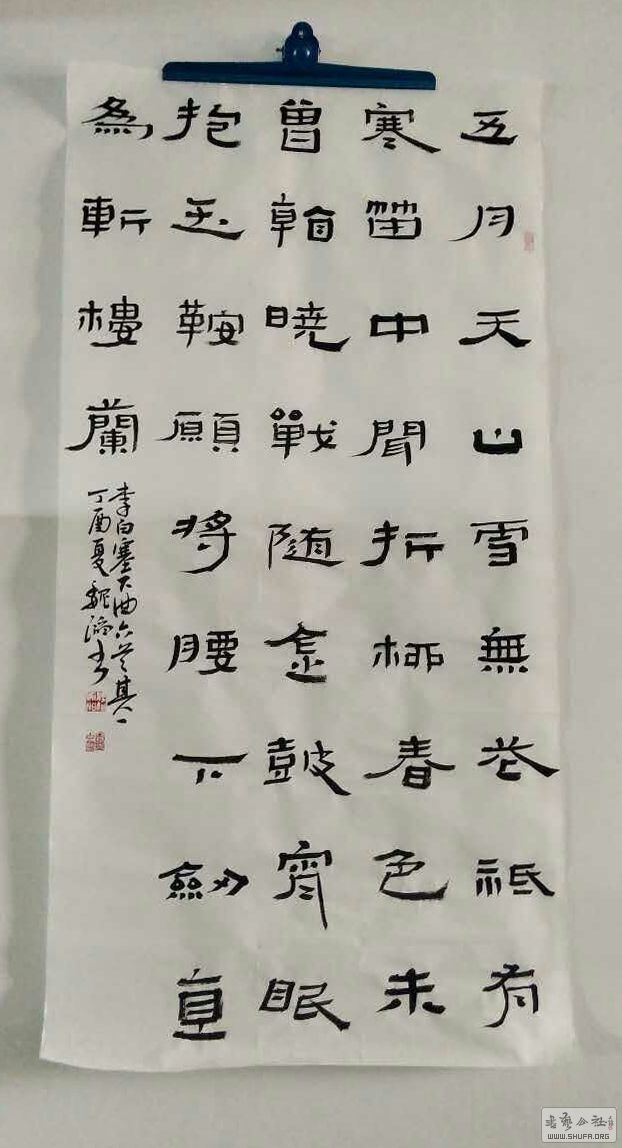 五月天山雪無花祇有
寒笛中聞折柳春色未
曾看曉戰隨金鼓宵眠
抱玉鞍願將腰下劍直
為斬樓蘭
李白塞下曲六首其一
丁酉夏魏書
书艺公社
WWW.SHUFA.ORG